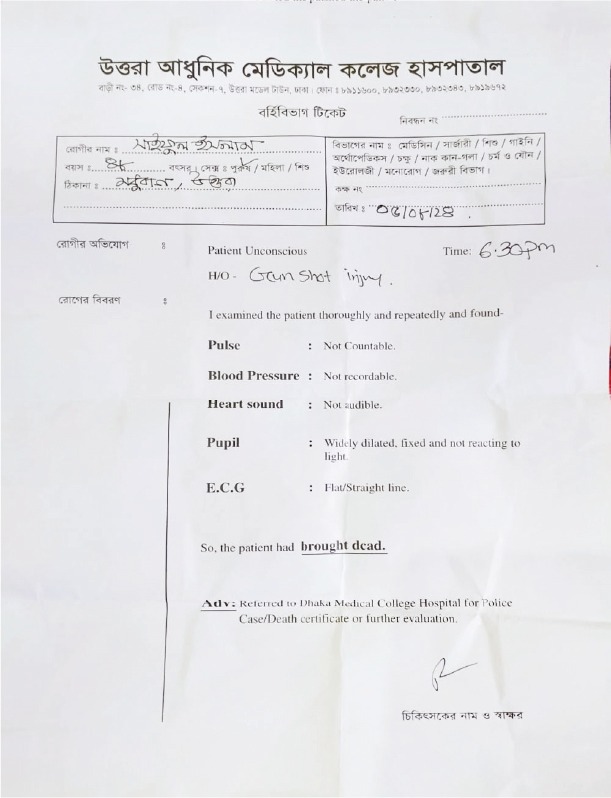 উত্তরা আধুনিক মেডিক্যাল কলেজ হাসপাতাল
বাড়ী নং- ৩৪, রোড নং-৪, সেকশন-৭, উত্তরা মডেল টাউন, ঢাকা। ফোন ঃ ৮৯১১৬০০, ৮৯৩২৩৩০, ৮৯৩২৩৪৩, ৮৯১৯৬৭২
বর্হিবিভাগ টিকেট
নিবন্ধন নং
রোগীর নাম ঃ সাইফুল ইসলাম
বয়স ঃ বৎসর, সেক্স ঃ পুরুষ / মহিলা / শিশু
ঠিকানা ঃ উত্তরা
বিভাগের নাম ঃ মেডিসিন / সার্জারী / শিশু / গাইনি /
অর্থোপেডিকস / চক্ষু / নাক কান-গলা / চর্ম ও যৌন /
ইউরোলজী / মনোরোগ / জরুরী বিভাগ।
কক্ষ নং
তারিখ ঃ
রোগীর অভিযোগ ঃ Patient Unconscious Time: 6.30pm
H/O - Gun shot injury.
রোগের বিবরণ ঃ
I examined the patient thoroughly and repeatedly and found-
Pulse : Not Countable.
Blood Pressure : Not recordable.
Heart sound : Not audible.
Pupil : Widely dilated, fixed and not reacting to
light.
E.C.G : Flat/Straight line.
So, the patient had brought dead.
Adv: Referred to Dhaka Medical College Hospital for Police
Case/Death certificate or further evaluation.
চিকিৎসকের নাম ও স্বাক্ষর